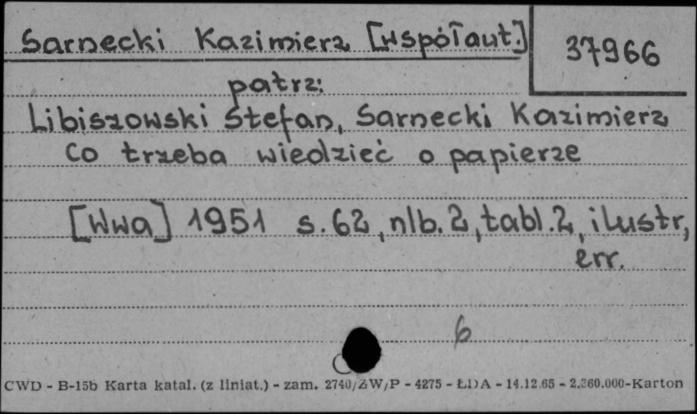 Sarnecki Kazimierz [współaut.]
37966
patrz:
Libiszowski Stefan, Sarnecki Kazimierz
Co trzeba wiedzieć o papierze
[Wwa] 1951 s. 62, nlb. 2, tabl. 2, ilustr,
err.
6
CWD - B-15b Karta katal. (z liniat.) - zam. 2740/ZW/P - 4275 - ŁDA - 14.12.65 - 2.360.000-Karton